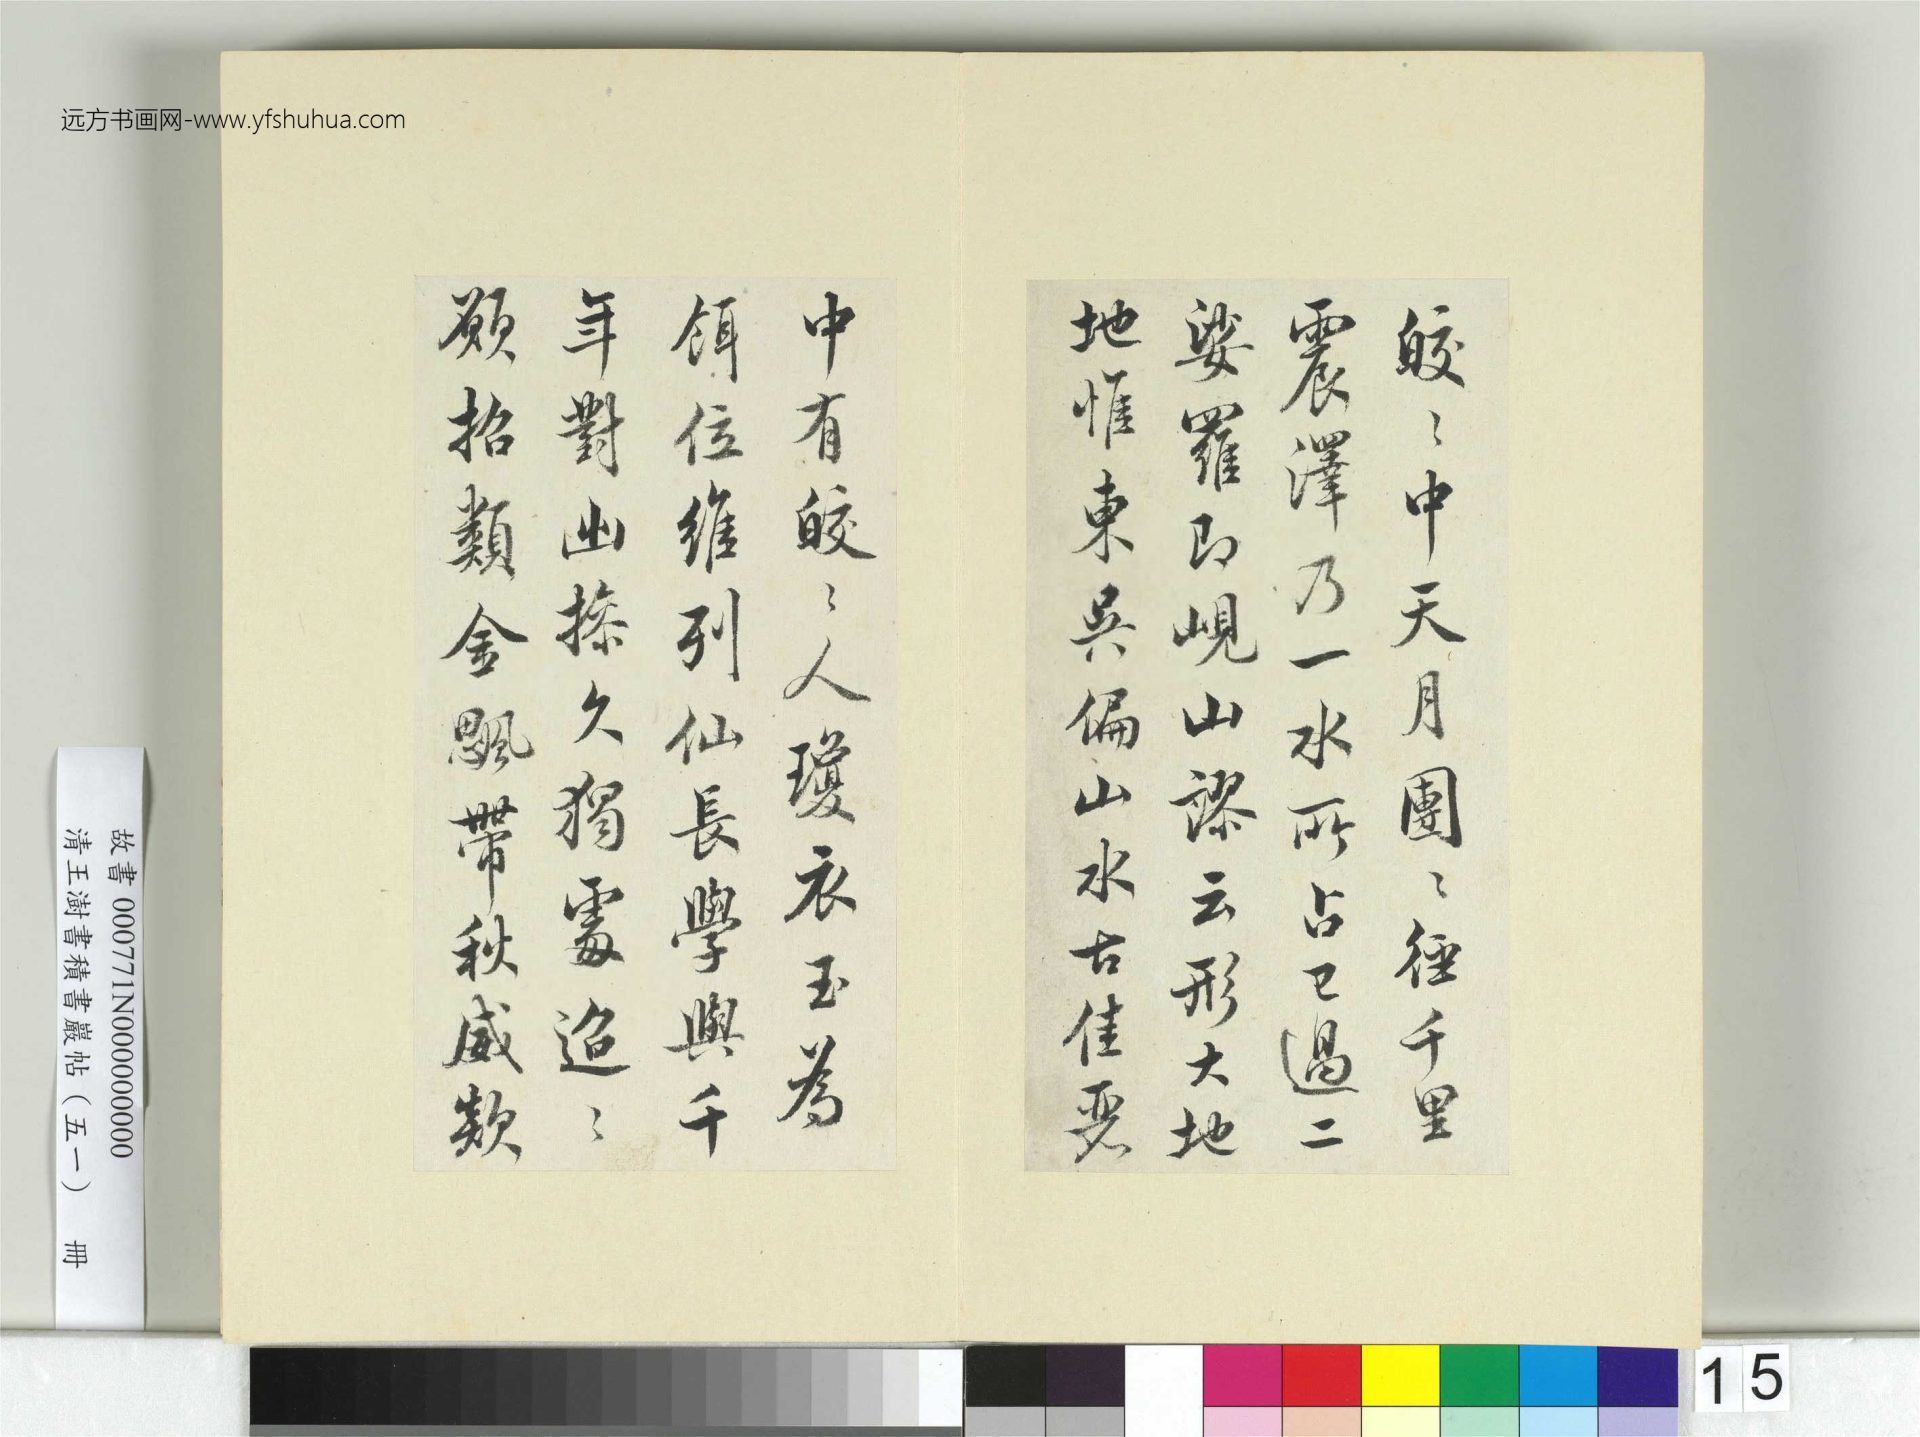 远方书画网-www.yfshuhua.com
皎〻中天月團〻徑千里
震澤乃一水所占已過二
娑羅即峴山謬云形大地
地惟東吳偏山水古佳麗
中有皎〻人瓊衣玉為
餌位維列仙長學與千
年對幽操久獨處迢〻
願招類金飈帶秋威欻
故書 000771N000000000
清王澍書積書巖帖（五一） 冊
15